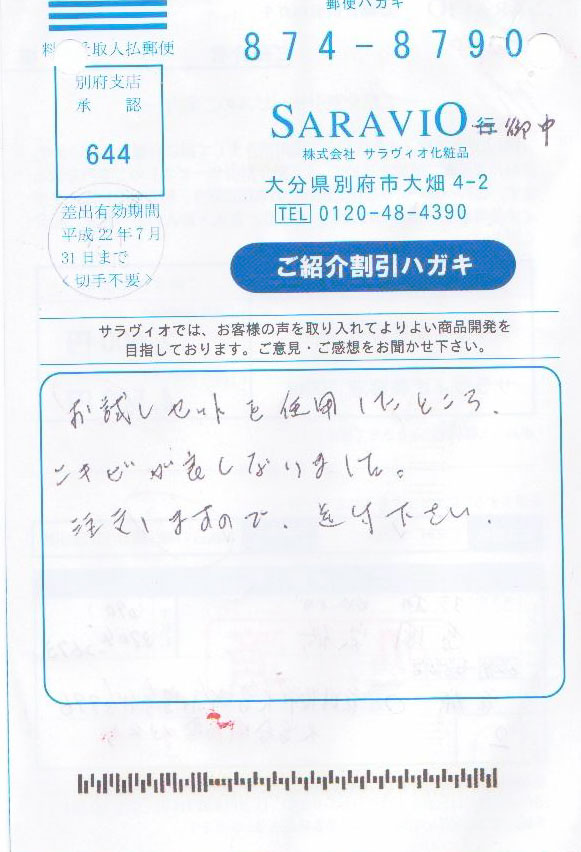 郵便ハガキ
料 受取人払郵便
874-8790
別府支店
承 認
644
SARAVIO 行 御中
株式会社 サラヴィオ化粧品
大分県別府市大畑 4-2
TEL 0120-48-4390
差出有効期間
平成 22年 7月
31日まで
<切手不要>
ご紹介割引ハガキ
サラヴィオでは、お客様の声を取り入れてよりよい商品開発を
目指しております。ご意見・ご感想をお聞かせ下さい。
お試しセットを使用したところ、
ニキビが良くなりました。
注文しますので、送付下さい。